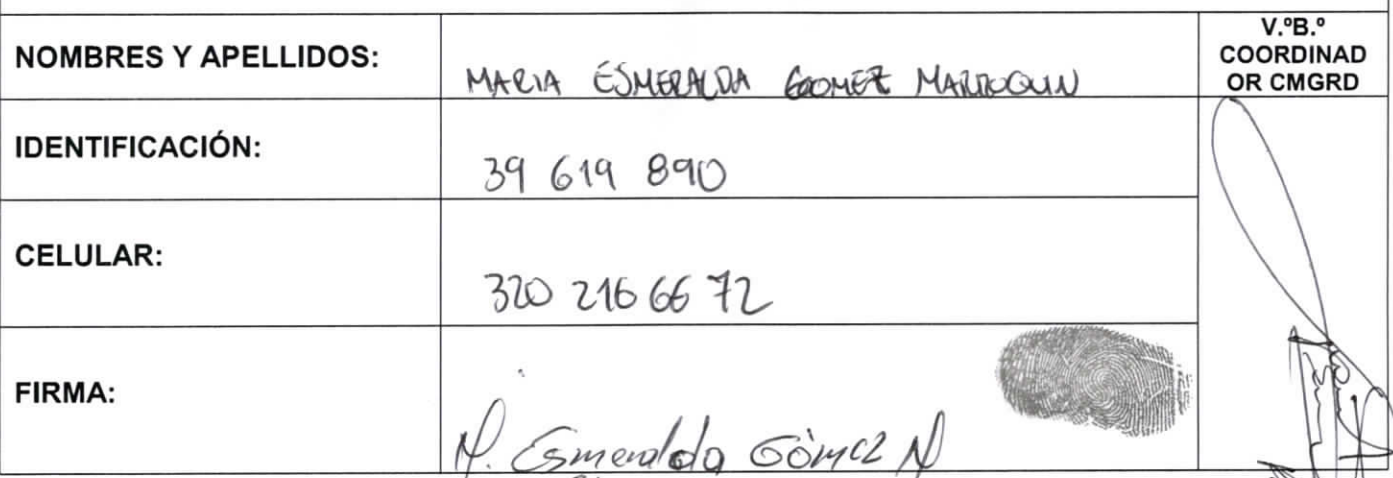 NOMBRES Y APELLIDOS: MARIA ESMERALDA GOMEZ MARROQUIN
V.ºB.º
COORDINAD
OR CMGRD
IDENTIFICACIÓN: 39 619 890
CELULAR: 320 216 66 72
FIRMA: M. Esmeralda Gómez M